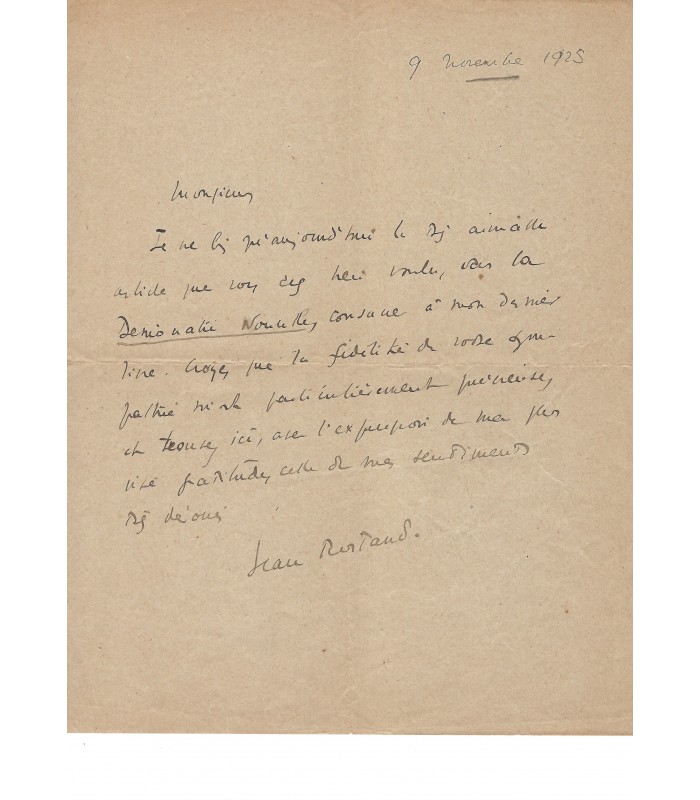 9 Novembre 1925
Monsieur
Je ne lis qu'aujourd'hui le très aimable
article que vous avez bien voulu, dans la
Démocratie Nouvelle, consacrer à mon dernier
livre. Croyez que la fidélité de votre sym-
pathie m'est particulièrement précieuse,
et trouvez ici, avec l'expression de ma plus
vive gratitude, celle de mes sentiments
très dévoués
Jean Rostand.